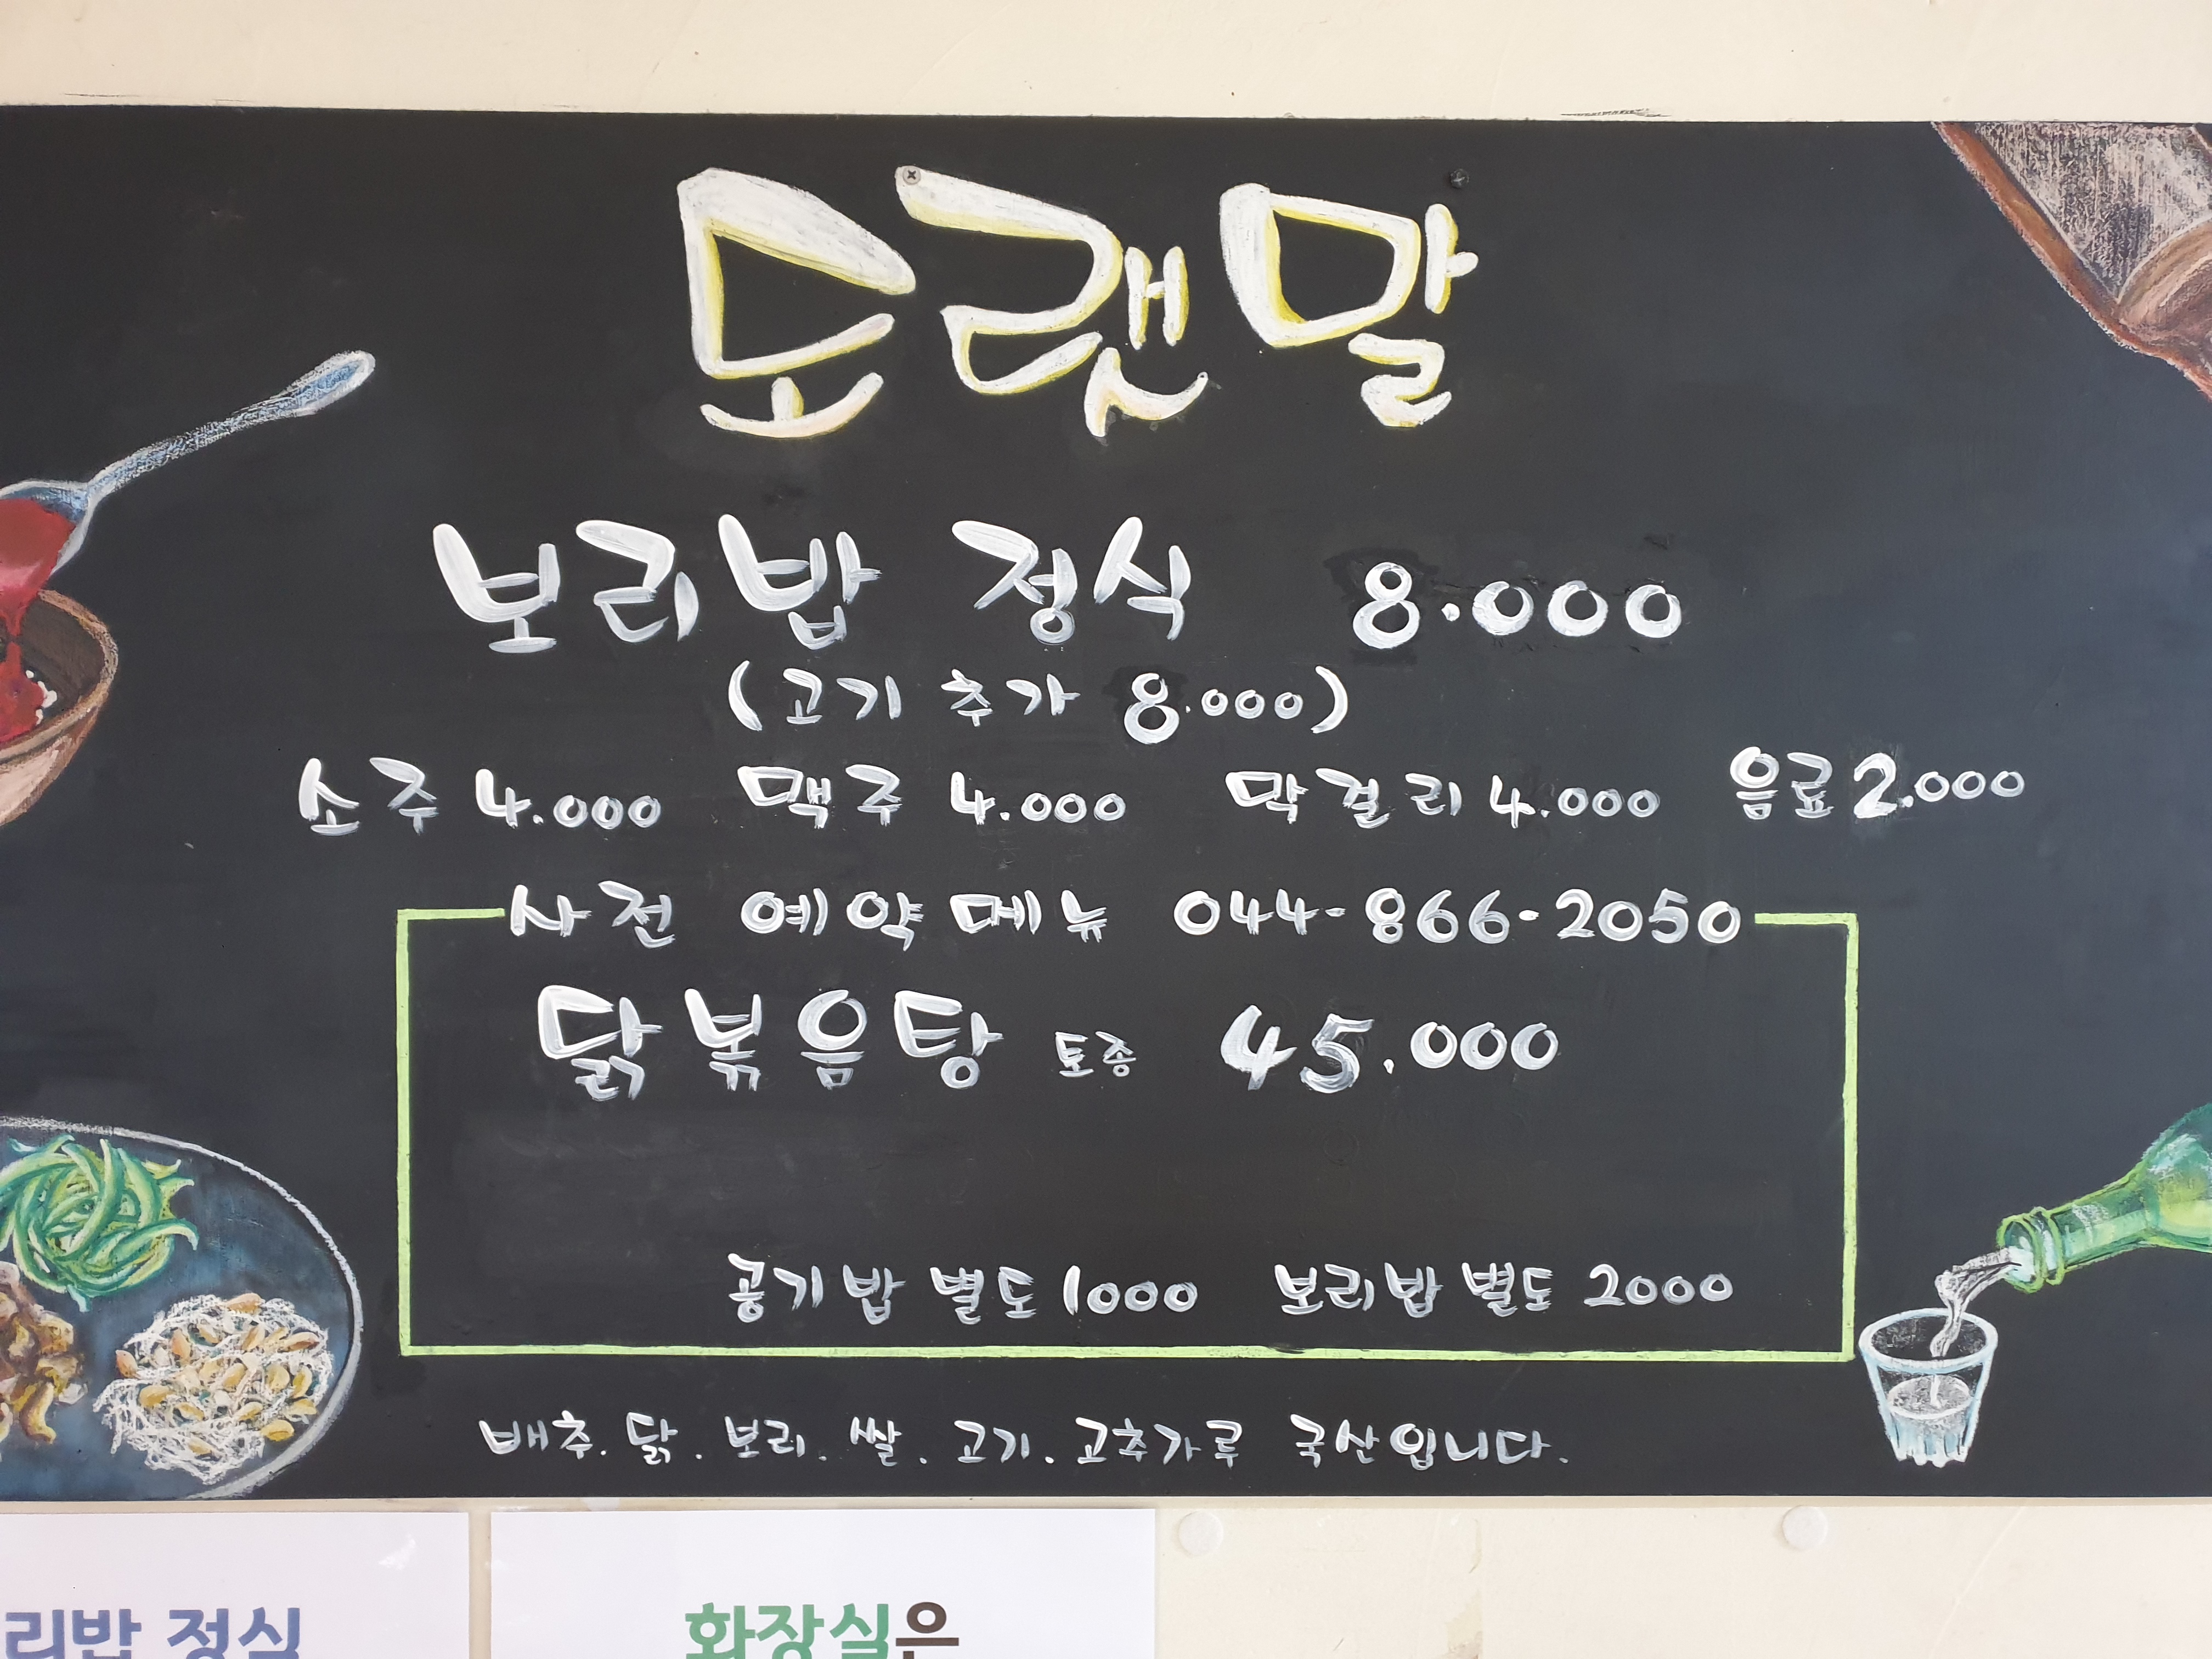 도랜말
보리밥 정식 8.000
(고기 추가 8.000)
소주 4.000 맥주 4.000 막걸리 4.000 음료 2.000
사전 예약 메뉴 044-866-2050
닭볶음탕 토종 45.000
공기밥 별도 1000 보리밥 별도 2000
배추. 닭. 보리. 쌀. 고기. 고추가루 국산입니다.
리밥 정식
화장실은